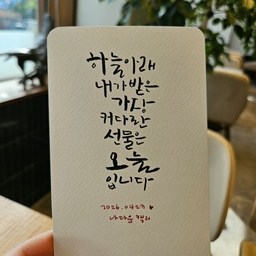 하늘아래
내가받은
가장
커다란
선물은
오늘
입니다
2026.04.23 ♥
나다움 캘리